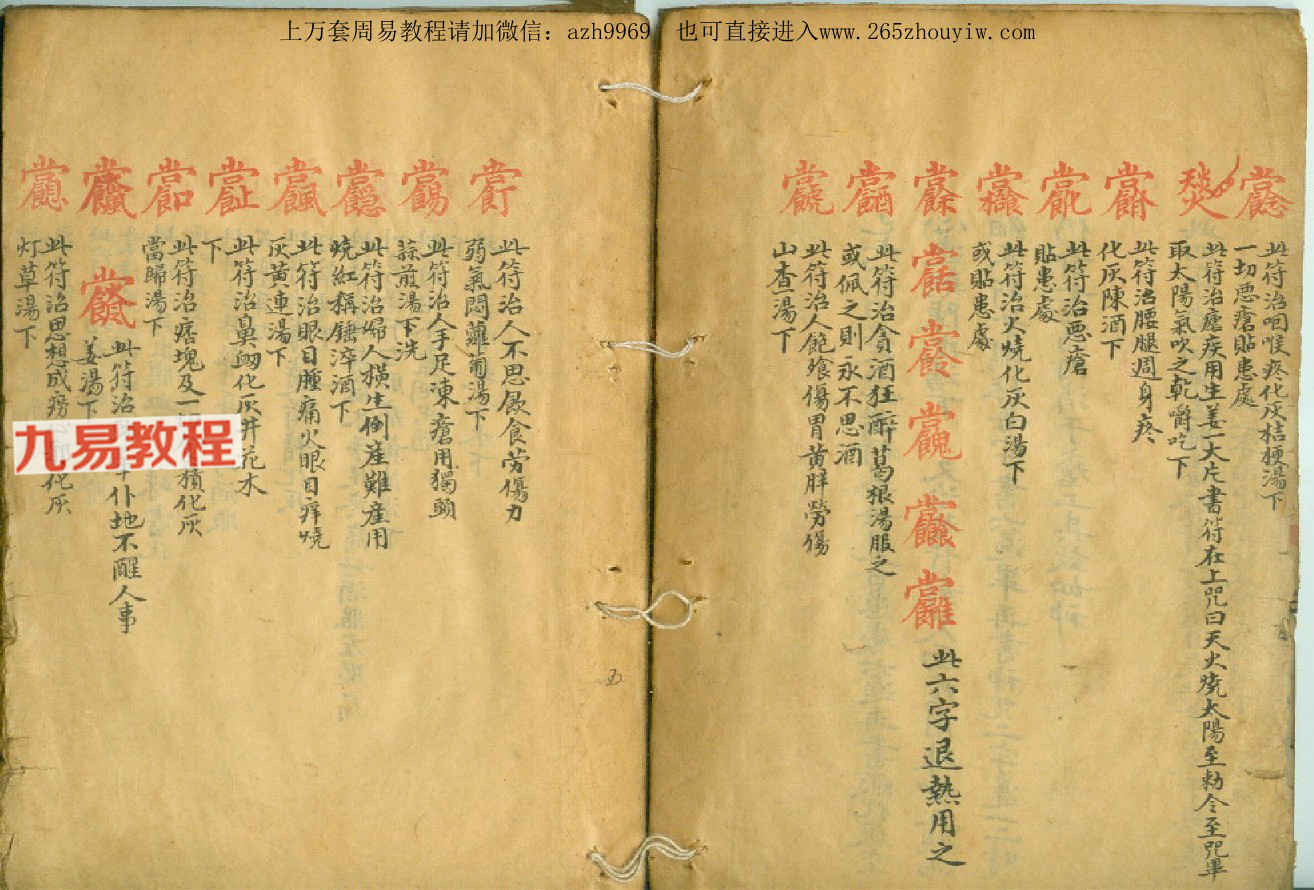 上万套周易教程请加微信：azh9969 也可直接进入www.265zhouyiw.com
此符治咽喉疼化灰桔梗湯下
一切惡瘡貼患處
此符治瘧疾用生姜一大片書符在上咒曰天火燒太陽至勅令至咒畢
取太陽氣吹之乾嚼吃下
此符治腰腿週身疼
化灰陳酒下
此符治惡瘡
貼患處
此符治火燒化灰白湯下
或貼患處
此六字退熱用之
此符治貪酒狂醉葛根湯服之
或佩之則永不思酒
此符治人飽飧傷胃黃胖勞傷
山查湯下
此符治人不思飲食劳傷力
弱氣悶蘿蔔湯下
此符治人手足凍瘡用獨頭
蒜煎湯下洗
此符治婦人橫生倒產難產用
燒紅稱錘淬酒下
此符治眼目腫痛火眼目痒燒
灰黃連湯下
此符治鼻衂化灰井花水
下
此符治痞塊及一積化灰
當歸湯下
此符治仆地不醒人事
姜湯下
此符治思想成癆化灰
灯草湯下
九易教程